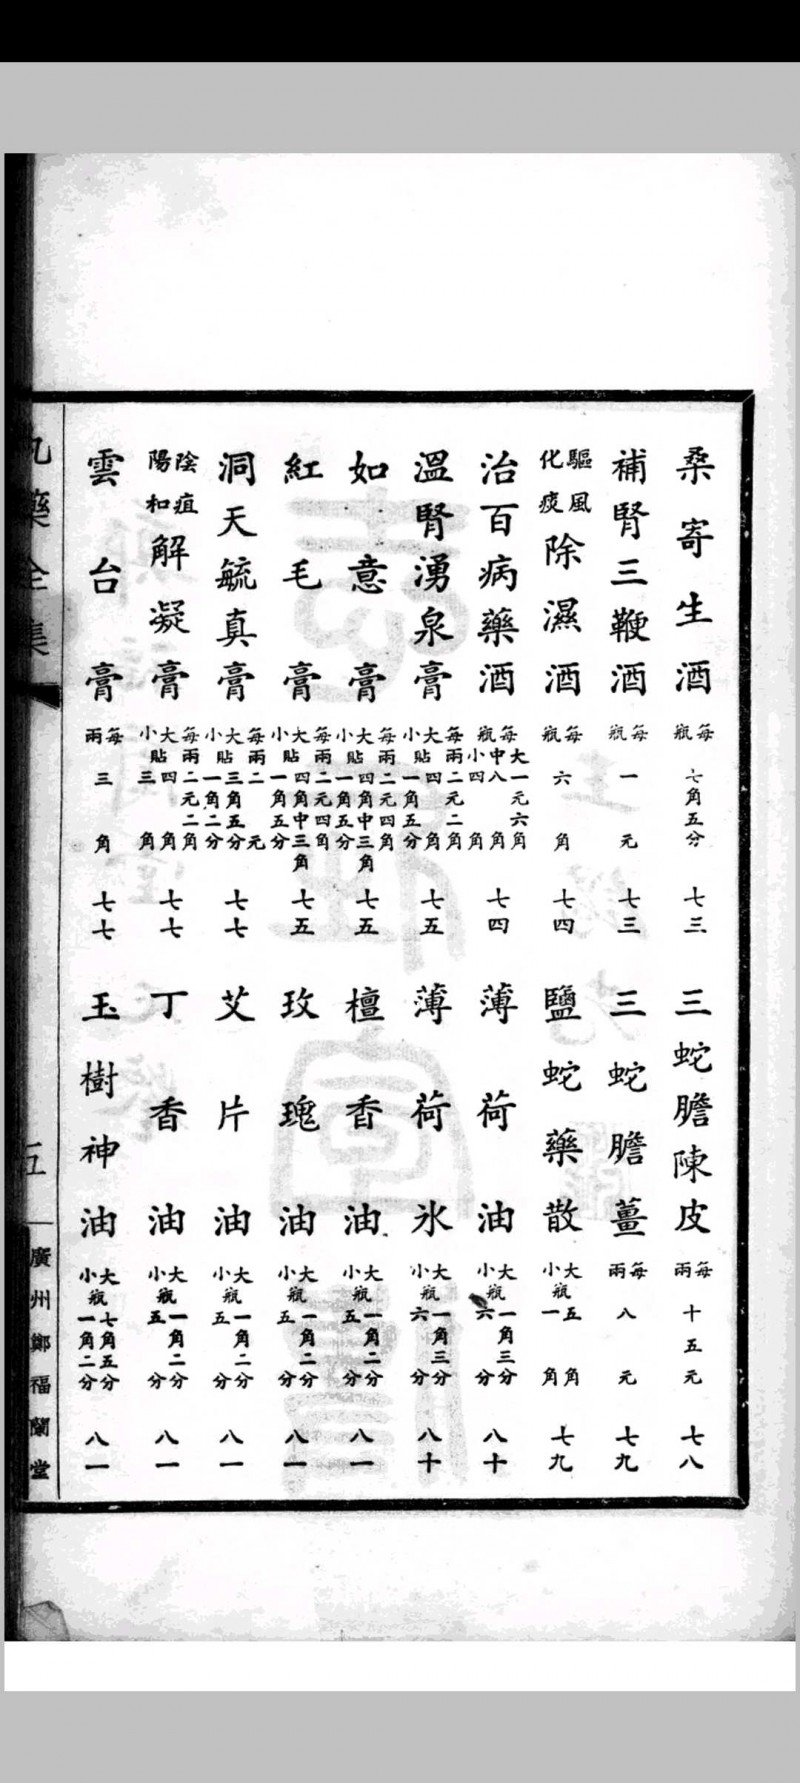 桑寄生酒 每瓶七角五分 七三
補腎三鞭酒 每瓶一元 七三
驅風化痰除濕酒 每瓶六角 七四
治百病藥酒 每瓶大一元六角中八角小四角 七四
溫腎湧泉膏 每兩二元二角大貼四角小一角五分 七五
如意膏 每兩二元四角大貼四角中三角小一角五分 七五
紅毛膏 每兩二元四角大貼四角中三角小一角五分 七五
洞天毓真膏 每兩二元大貼三角五分小一角二分 七七
陰疽陽和解凝膏 每兩二元二角大貼四角小三角 七七
雲台膏 每兩三角 七七
三蛇膽陳皮 每兩十五元 七八
三蛇膽薑 每兩八元 七九
鹽蛇藥散 大瓶五角小一角 七九
薄荷油 大瓶一角三分小六分 八十
薄荷氷 大瓶一角三分小六分 八十
檀香油 大瓶一角二分小五分 八一
玫瑰油 大瓶一角二分小五分 八一
艾片油 大瓶一角二分小五分 八一
丁香油 大瓶一角二分小五分 八一
玉樹神油 大瓶七角五分小一角二分 八一
丸藥全集
五
廣州鄭福蘭堂